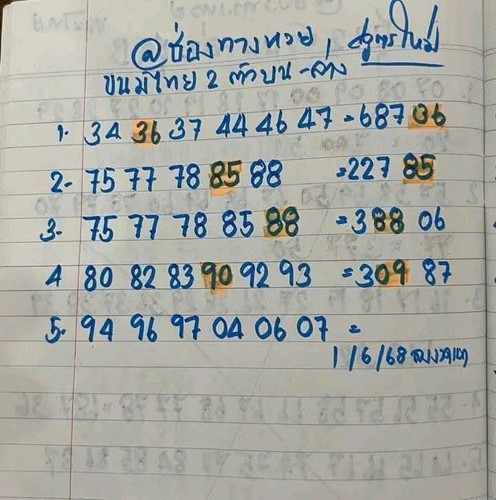 @ช่องทางทวย สูตรใหม่
ขนมไทย 2 ตัวบน-ล่าง
1. 34 36 37 44 46 47 =687 36
2- 75 77 78 85 88 =227 85
3- 75 77 78 85 88 =388 06
4 80 82 83 90 92 93 =309 87
5. 94 96 97 04 06 07 =
1/6/68